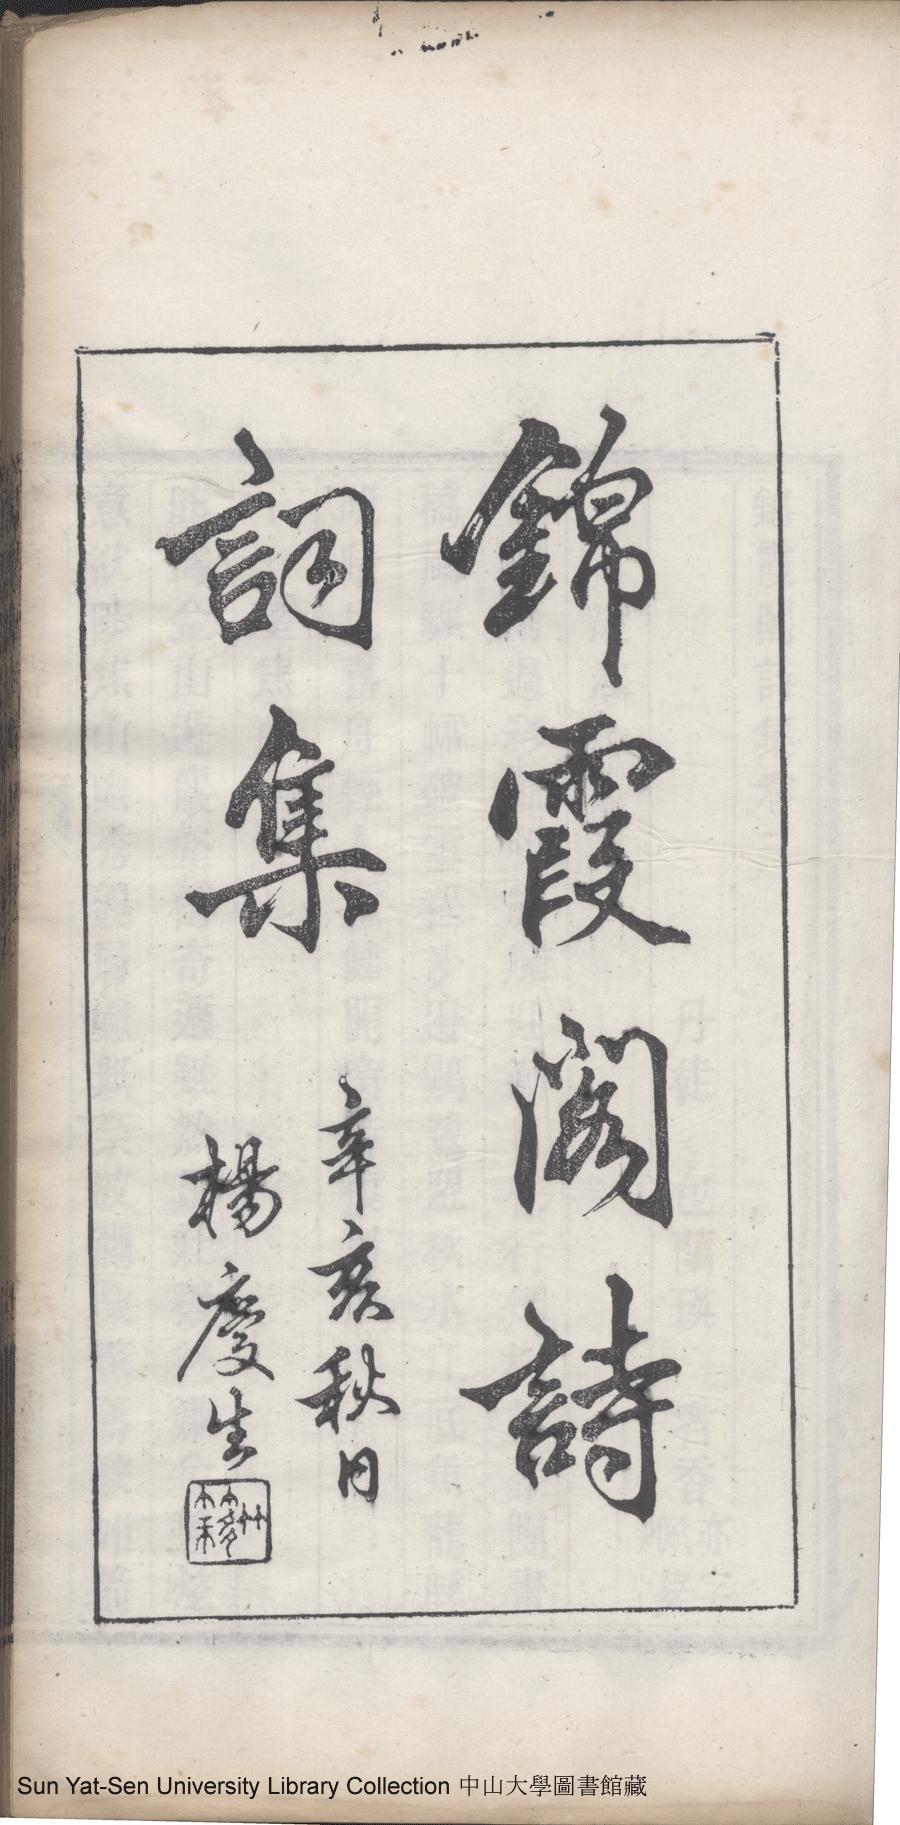 錦霞閣詩
詞集
辛亥秋日
楊慶生
Sun Yat-Sen University Library Collection 中山大學圖書館藏